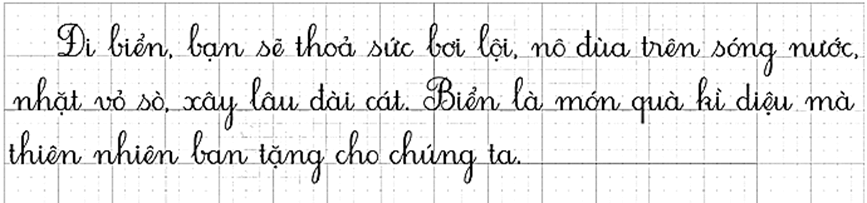 Đi biển, bạn sẽ thoả sức bơi lội, nô đùa trên sóng nước,
nhặt vỏ sò, xây lâu đài cát. Biển là món quà kì diệu mà
thiên nhiên ban tặng cho chúng ta.